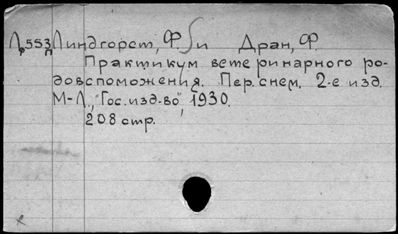 Л553 Линдгорст, Ф. и Дран, Ф.
п
Практикум ветеринарного ро-
довспоможения. Пер. с нем. 2-е изд.
М-Л., "Гос. изд-во", 1930.
208 стр.